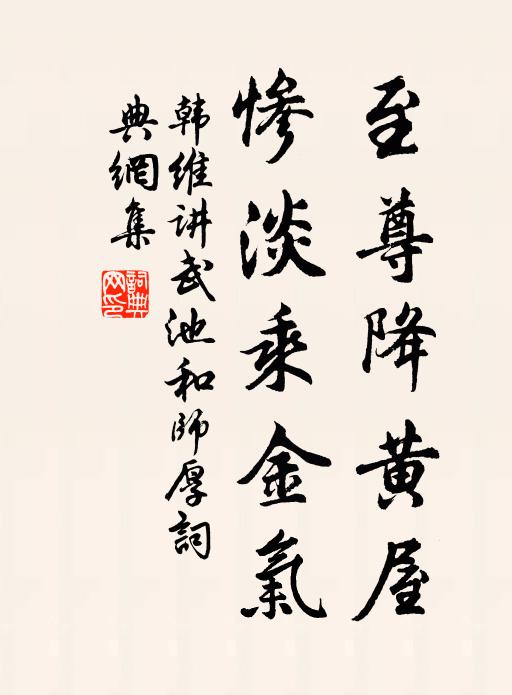 至尊降黄屋
惨淡乘金氣
韩維讲武池和師厚詞
典網集
詞典網印